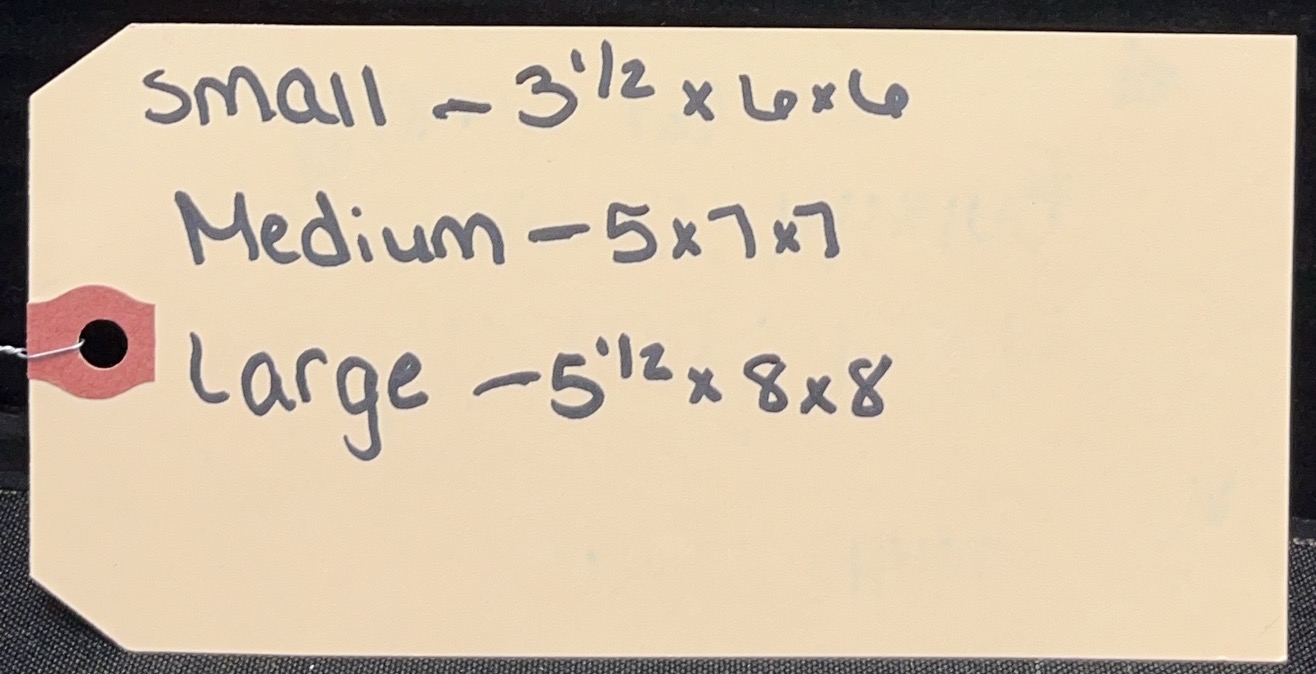 Small - 3 1/2 x 6 x 6
Medium - 5 x 7 x 7
Large - 5 1/2 x 8 x 8